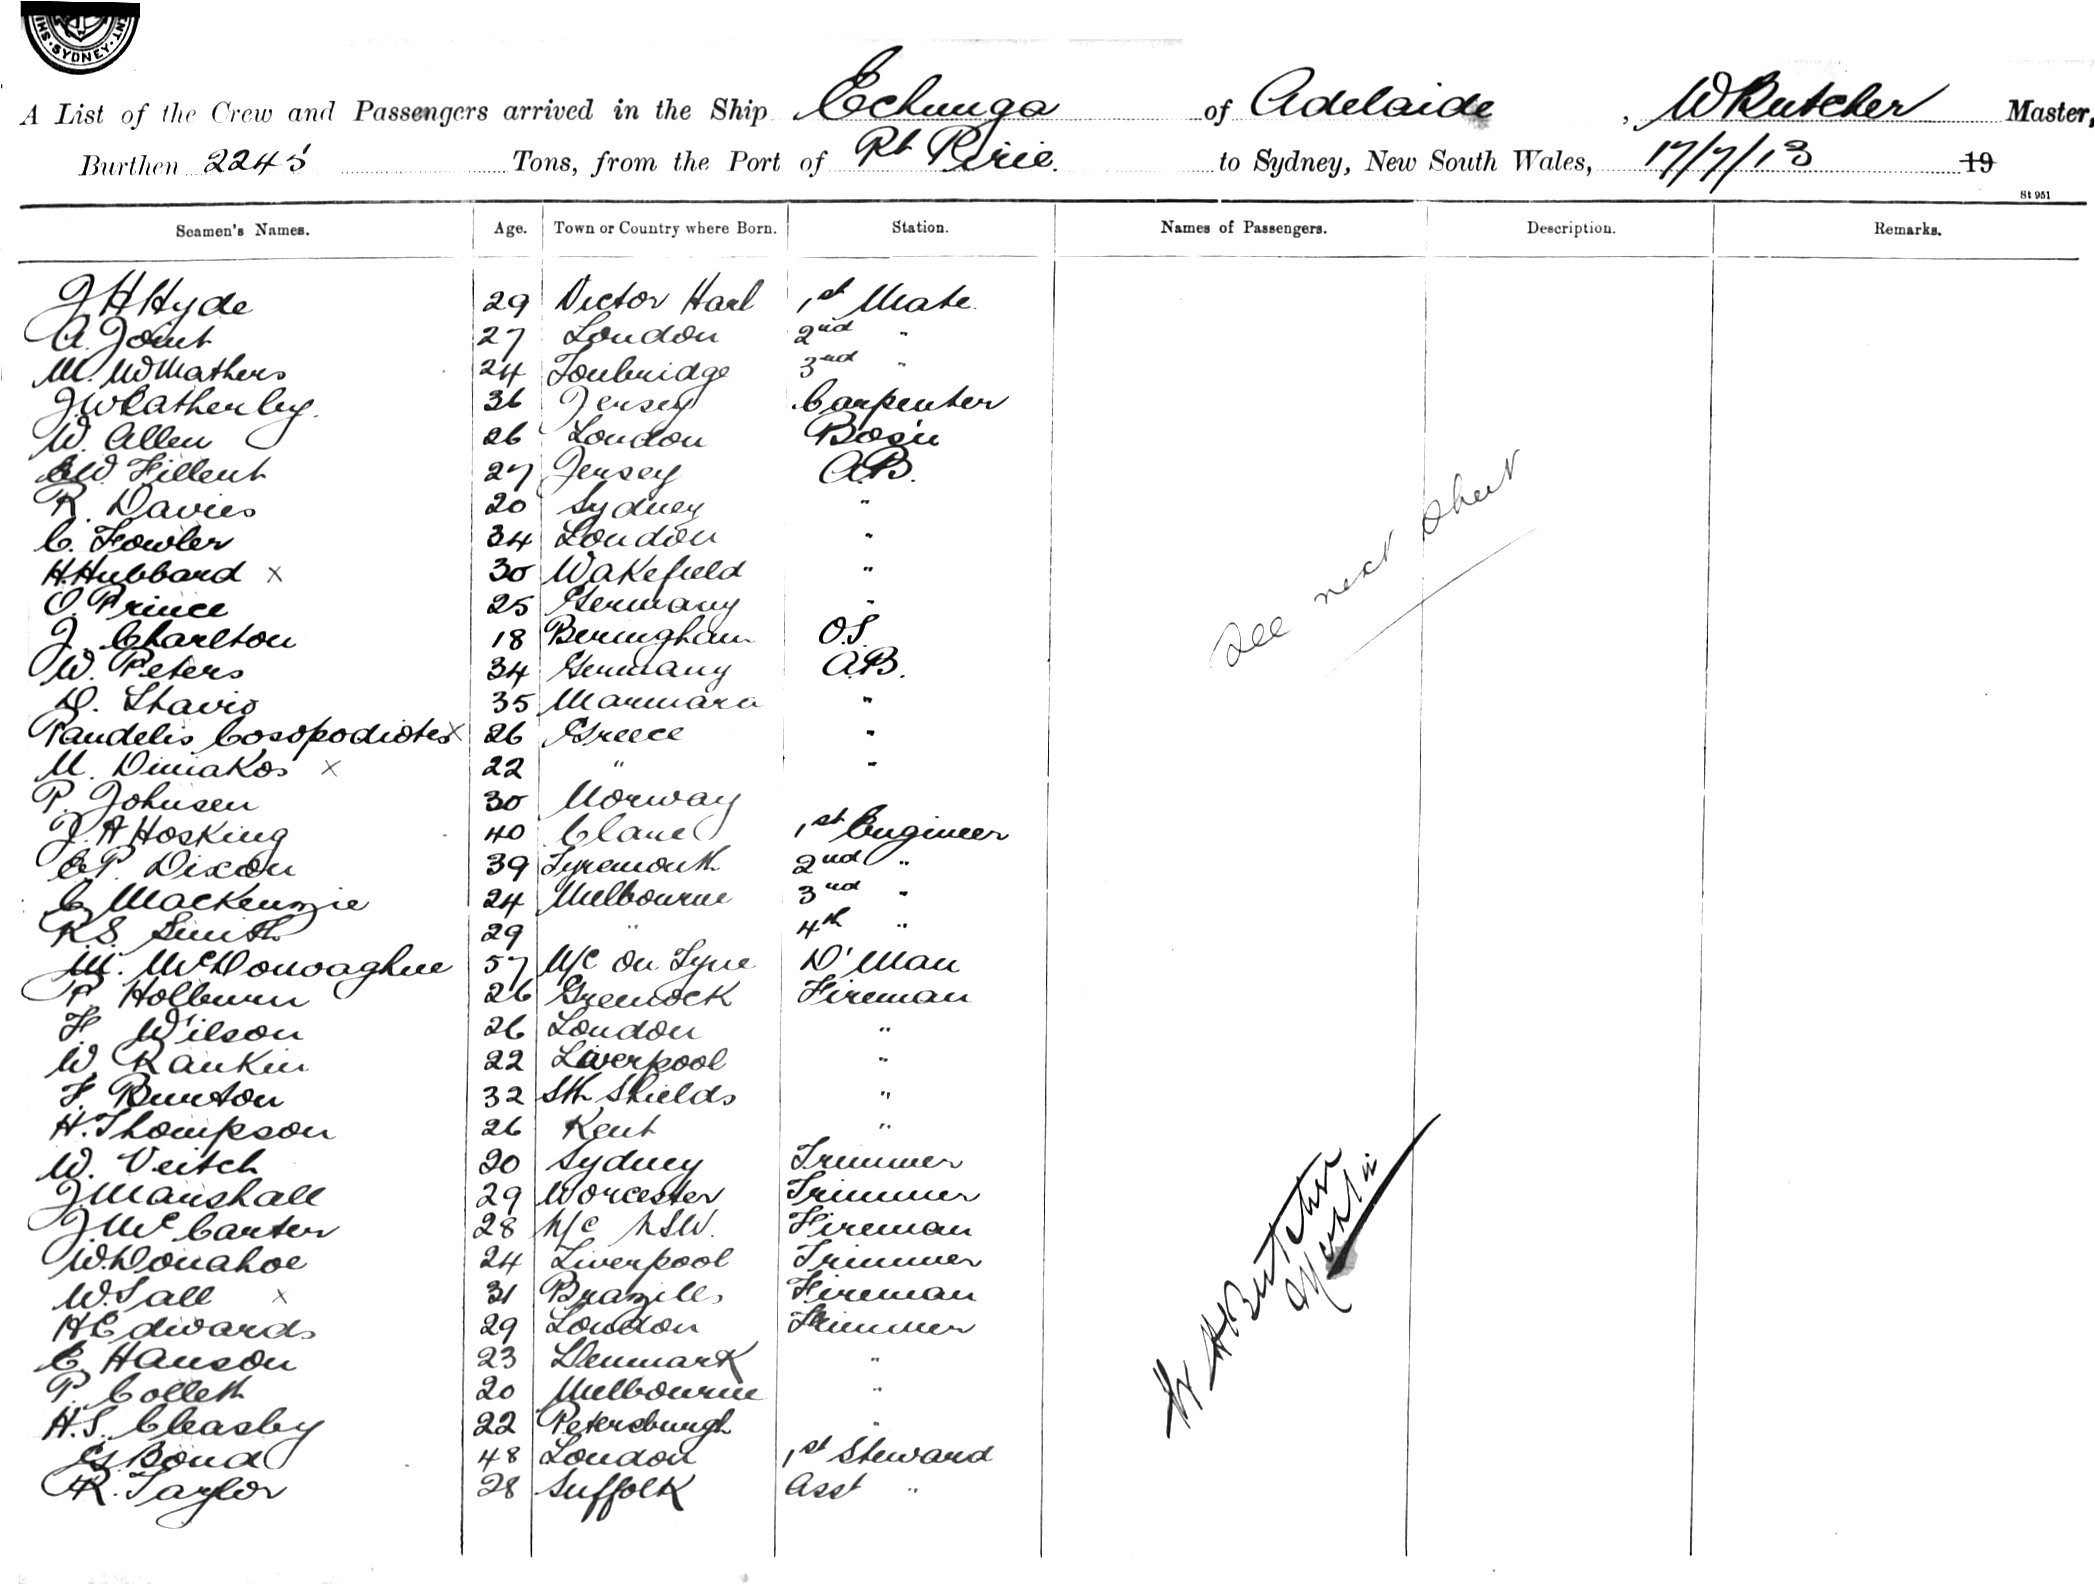 · SYDNEY ·
A List of the Crew and Passengers arrived in the Ship Echunga of Adelaide, W Butcher Master,
Burthen 2245 Tons, from the Port of Pt Pirie. to Sydney, New South Wales, 17/7/13 19
St 951
Seamen's Names. Age. Town or Country where Born. Station. Names of Passengers. Description. Remarks.
J H Hyde 29 Victor Harb 1st Mate
A. Joint 27 London 2nd "
M. W Mathers 24 Tonbridge 3rd "
J. W Catherley. 36 Jersey Carpenter
W. Allen 26 London Bos'n
E W. Fillent 27 Jersey A.B.
R. Davies 20 Sydney "
C. Fowler 34 London "
H. Hubbard x 30 Wakefield "
O. Prince 25 Germany "
J. Charlton 18 Bermingham O.S.
W. Peters 34 Germany A.B.
D. Stavis 35 Marmara "
Pandelis Cosopodiotes x 26 Greece "
M. Dimakos x 22 " "
P. Johnsen 30 Norway
J. A Hosking 40 Clare 1st Engineer
E P. Dixon 39 Tynemouth 2nd "
C. MacKenzie 24 Melbourne 3rd "
R. S. Smith 29 " 4th "
M. McDonoaghue 57 N/C On Tyne D'Man
P. Holburn 26 Greenock Fireman
F. Wilson 26 London "
W. Rankin 22 Liverpool "
F. Burton 32 Sth Shields "
H. Thompson 26 Kent "
W. Veitch 20 Sydney Trimmer
J. Marshall 29 Worcester Trimmer
J. McCarter 28 N/C NSW. Fireman
W. Donahoe 24 Liverpool Trimmer
W. Sall x 31 Brazills Fireman
H Edwards 29 London Trimmer
C. Hanson 23 Denmark "
P. Collett 20 Melbourne "
H. S. Cleasby 22 Petersburgh "
Bond 48 London 1st Steward
R. Taylor 28 Suffolk Asst "
See next Sheet
W H Butcher
Master